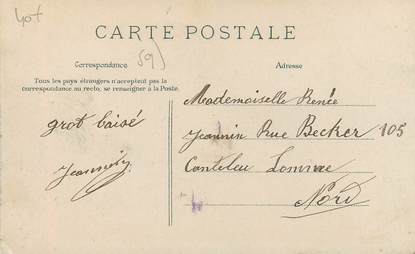 Lot
59)
CARTE POSTALE
Correspondance
Adresse
Tous les pays étrangers n'acceptent pas la
correspondance au recto, se renseigner à la Poste.
grot baisé
Mademoiselle Renée
Jeannin Rue Becker 105
Canteleu Lomme
Nord